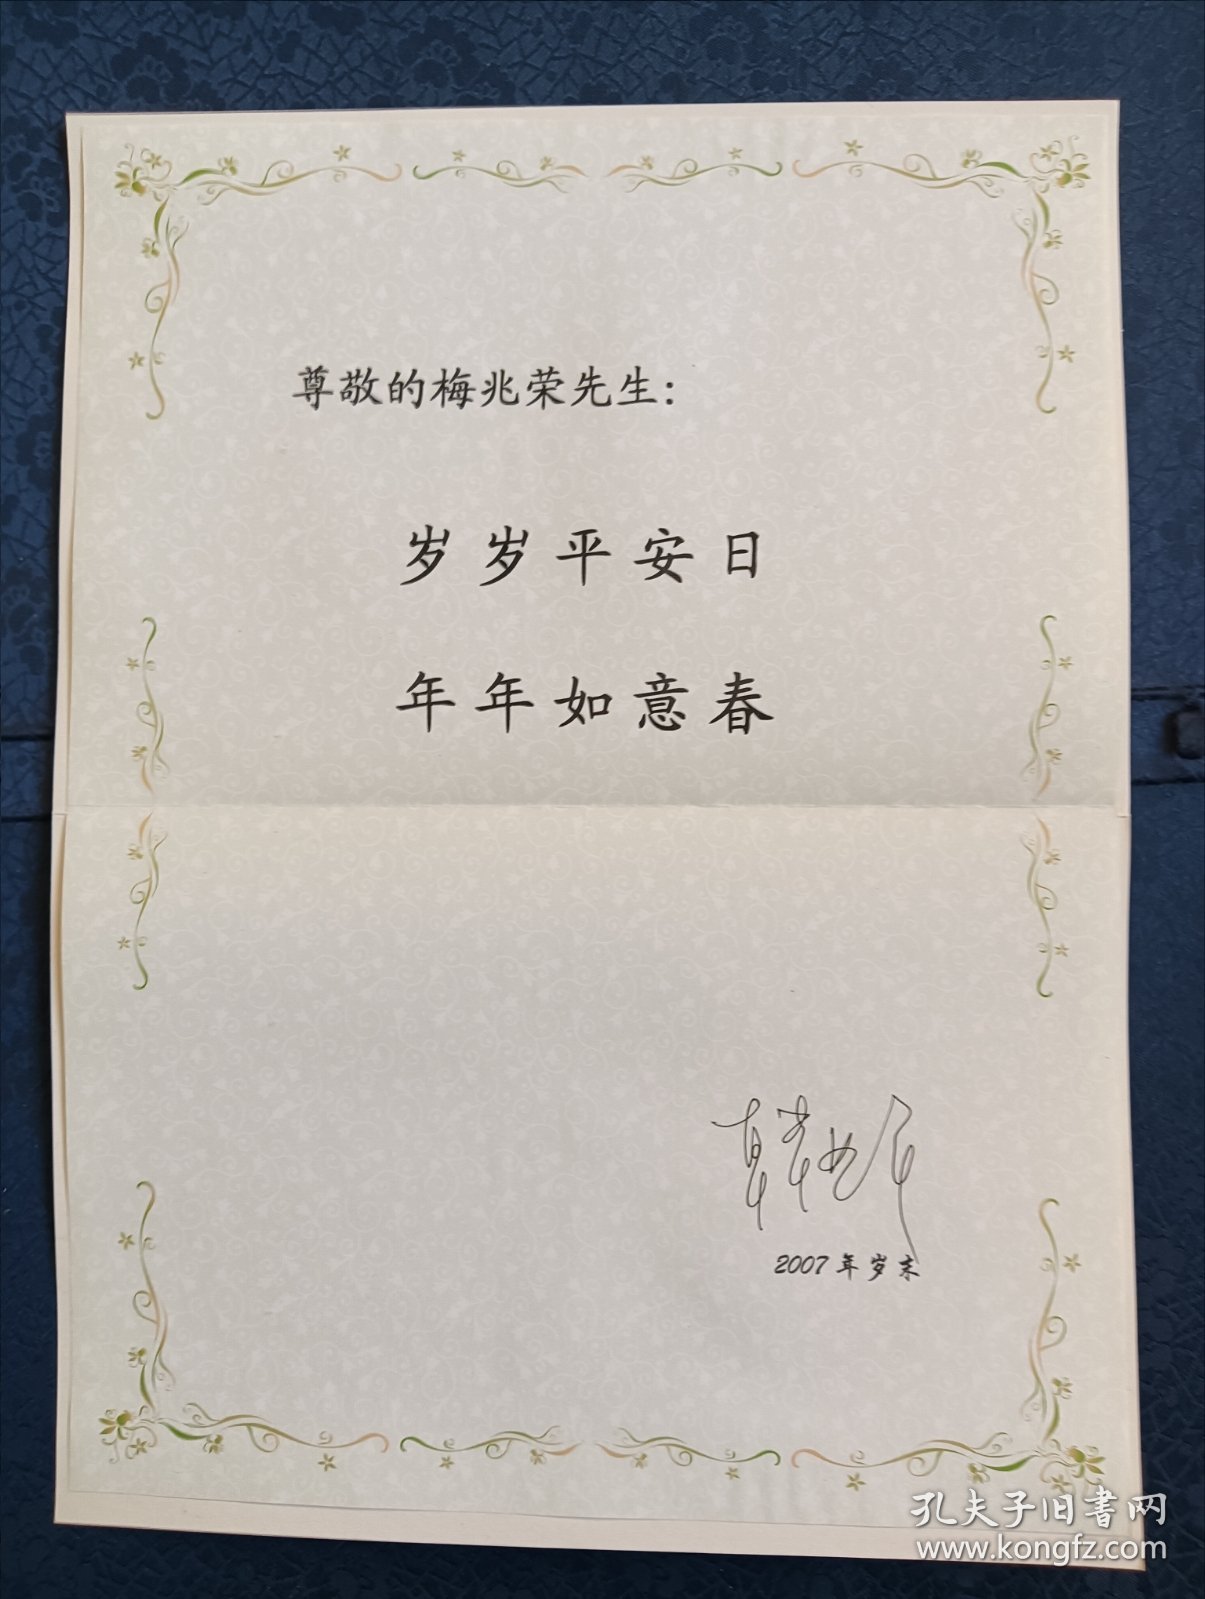 尊敬的梅兆荣先生：
岁岁平安日
年年如意春
2007年岁末
孔夫子旧书网
www.kongfz.com